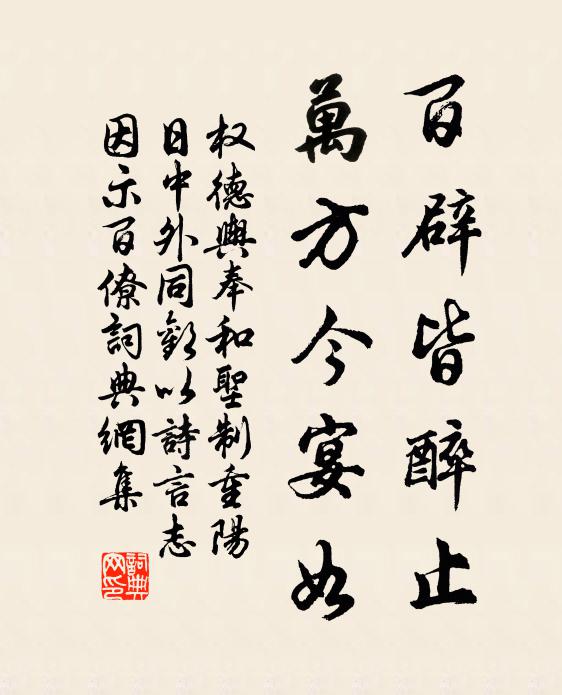 百辟皆醉止
萬方今宴如
权德輿奉和聖制重陽
日中外同歡以詩言志
因示百僚詞典網集
詞典
网印